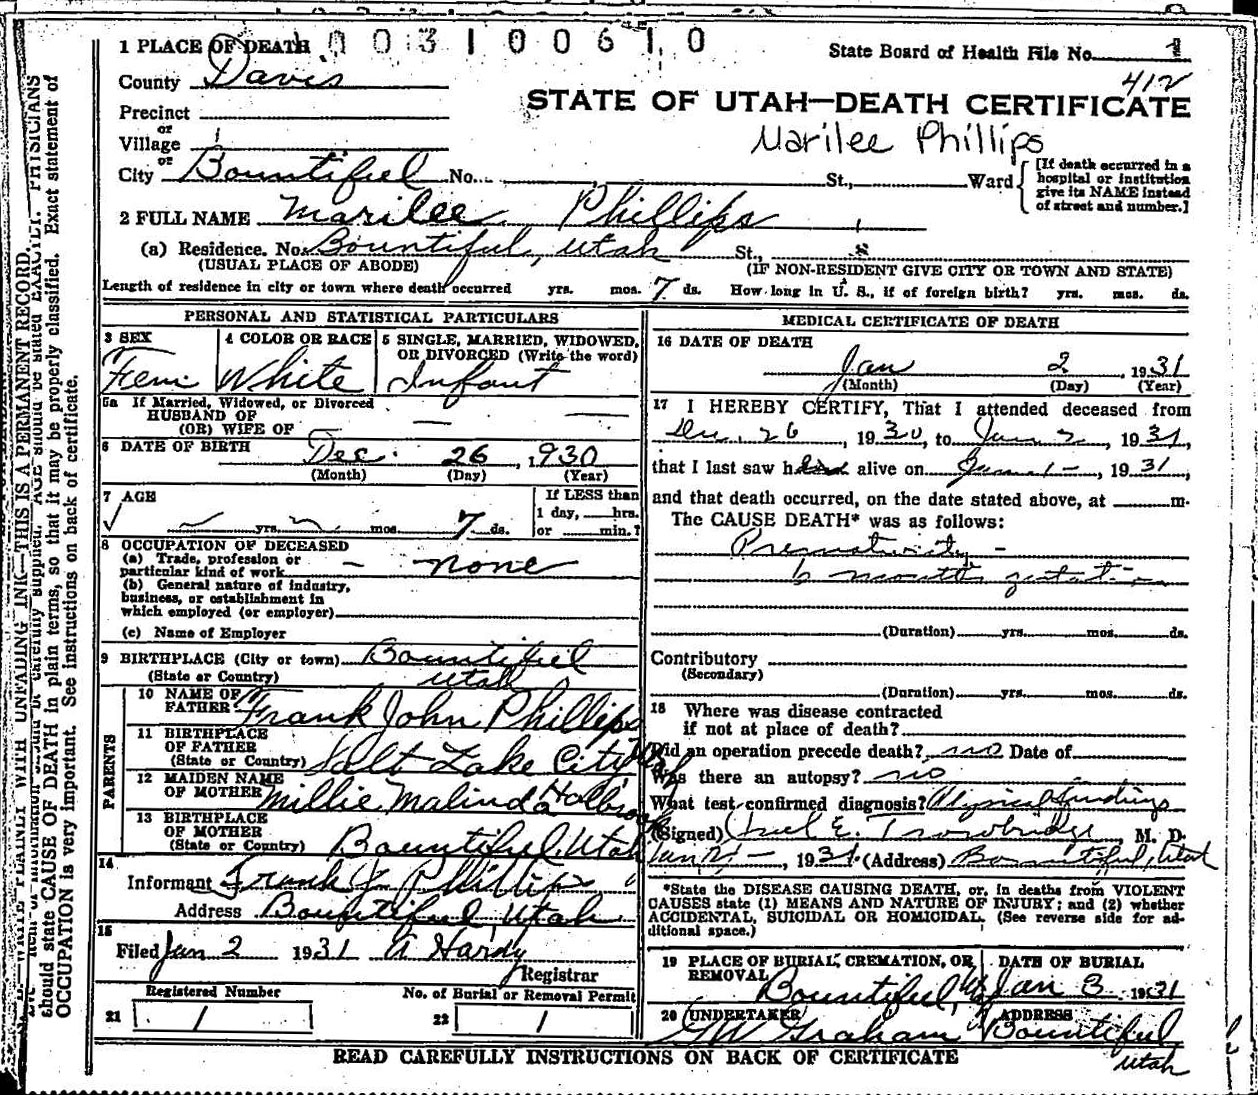 0 0 3 1 0 0 6 1 0
1 PLACE OF DEATH
State Board of Health File No. 1
County Davis
412
STATE OF UTAH—DEATH CERTIFICATE
Precinct
or
Village
Marilee Phillips
or
City Bountiful No. St., Ward
[If death occurred in a hospital or institution give its NAME instead of street and number.]
2 FULL NAME Marilee Phillips
(a) Residence. No. Bountiful, Utah St.,
(USUAL PLACE OF ABODE) (IF NON-RESIDENT GIVE CITY OR TOWN AND STATE)
Length of residence in city or town where death occurred yrs. mos. 7 ds. How long in U. S., if of foreign birth? yrs. mos. ds.
PERSONAL AND STATISTICAL PARTICULARS
3 SEX 4 COLOR OR RACE 5 SINGLE, MARRIED, WIDOWED,
OR DIVORCED (Write the word)
Fem White Infant
5a If Married, Widowed, or Divorced
HUSBAND OF —
(OR) WIFE OF —
6 DATE OF BIRTH Dec. 26, 1930
(Month) (Day) (Year)
7 AGE
If LESS than
1 day, hrs.
yrs. mos. 7 ds. or min.?
8 OCCUPATION OF DECEASED
(a) Trade, profession or
particular kind of work — none
(b) General nature of industry,
business, or establishment in
which employed (or employer)
(c) Name of Employer
9 BIRTHPLACE (City or town) Bountiful
(State or Country) Utah
PARENTS
10 NAME OF
FATHER Frank John Phillips
11 BIRTHPLACE
OF FATHER
(State or Country) Salt Lake City Utah
12 MAIDEN NAME
OF MOTHER Millie Malinda Holbrook
13 BIRTHPLACE
OF MOTHER
(State or Country) Bountiful, Utah
14
Informant Frank J. Phillips
Address Bountiful, Utah
15
Filed Jan 2 1931 A Hardy
Registrar
Registered Number No. of Burial or Removal Permit
21 1 22 1
MEDICAL CERTIFICATE OF DEATH
16 DATE OF DEATH
Jan 2, 1931
(Month) (Day) (Year)
17 I HEREBY CERTIFY, That I attended deceased from
Dec. 26, 1930, to Jan 2, 1931,
that I last saw h alive on Jan 1 -, 1931,
and that death occurred, on the date stated above, at m.
The CAUSE DEATH* was as follows:
Prematurity -
6 months gestation
(Duration) yrs. mos. ds.
Contributory
(Secondary)
(Duration) yrs. mos. ds.
18 Where was disease contracted
if not at place of death?
Did an operation precede death? no Date of
Was there an autopsy? no
What test confirmed diagnosis? Physical findings
(Signed) E. Trowbridge M. D.
Jan 2 -, 1931 (Address) Bountiful, Utah
*State the DISEASE CAUSING DEATH, or, in deaths from VIOLENT
CAUSES state (1) MEANS AND NATURE OF INJURY; and (2) whether
ACCIDENTAL, SUICIDAL OR HOMICIDAL. (See reverse side for ad-
ditional space.)
19 PLACE OF BURIAL, CREMATION, OR DATE OF BURIAL
REMOVAL
Bountiful, Jan 3 1931
20 UNDERTAKER ADDRESS
GW Graham Bountiful
Utah
READ CAREFULLY INSTRUCTIONS ON BACK OF CERTIFICATE
WRITE PLAINLY WITH UNFADING INK—THIS IS A PERMANENT RECORD.
information should be carefully supplied. AGE should be stated EXACTLY. PHYSICIANS
should state CAUSE OF DEATH in plain terms, so that it may be properly classified. Exact statement of
OCCUPATION is very important. See instructions on back of certificate.